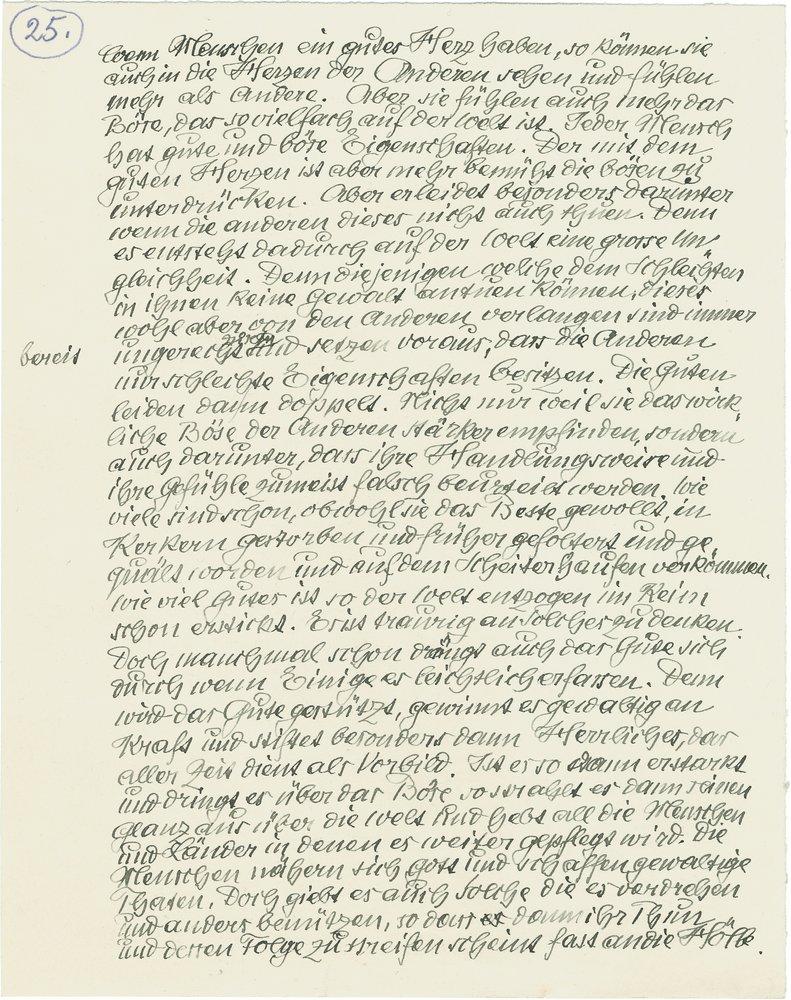 25.
Wenn Menschen ein gutes Herz haben, so können sie
auch in die Herzen der Anderen sehen und fühlen
mehr als Andere. Aber sie fühlen auch mehr das
Böse, das so vielfach auf der Welt ist. Jeder Mensch
hat gute und böse Eigenschaften. Der mit dem
guten Herzen ist aber mehr bemüht die bösen zu
unterdrücken. Aber er leidet besonders darunter
wenn die anderen dieses nicht auch thuen. Denn
es entsteht dadurch auf der Welt eine grosse Un„
gleichheit. Denn diejenigen welche dem Schlechten
in ihnen keine Gewalt antuen können, dieses
wohl aber von den Anderen verlangen sind immer
bereit
ungerecht und setzen voraus, dass die Anderen
nur schlechte Eigenschaften besitzen. Die Guten
leiden dann doppelt. Nicht nur weil sie das wirk„
liche Böse der Anderen stärker empfinden, sondern
auch darunter, dass ihre Handlungsweise und
ihre Gefühle zumeist falsch beurteilt werden. Wie
viele sind schon, obwohl sie das Beste gewollt, in
Kerkern gestorben und früher gefoltert und ge„
quält worden und auf dem Scheiterhaufen verkommen.
Wie viel Gutes ist so der Welt entzogen im Keim
schon erstickt. Es ist traurig an solches zu denken.
Doch manchmal schon drängt auch das Gute sich
durch wenn Einige es leichtlich erfassen. Denn
wird das Gute gestützt, gewinnt es gewaltig an
Kraft und stiftet besonders dann Herrliches, das
aller Zeit dient als Vorbild. Ist es so dann erstarkt
und dringt es über das Böse so strahlt es dann seinen
Glanz aus über die Welt und hebt all die Menschen
und Länder in denen es weiter gepflegt wird. Die
Menschen nähern sich Gott und schaffen gewaltige
Thaten. Doch giebt es auch solche die es verdrehen
und anders benützen, so dass es dann ihr Thun
und dessen Folge zu streifen scheint fast an die Hölle.